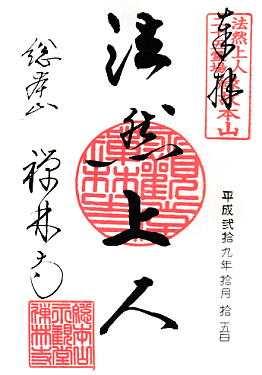 奉拝
法然上人
平成弐拾九年拾月拾五日
法然上人
総本山
禅林寺
総本山
永観堂
禅林寺